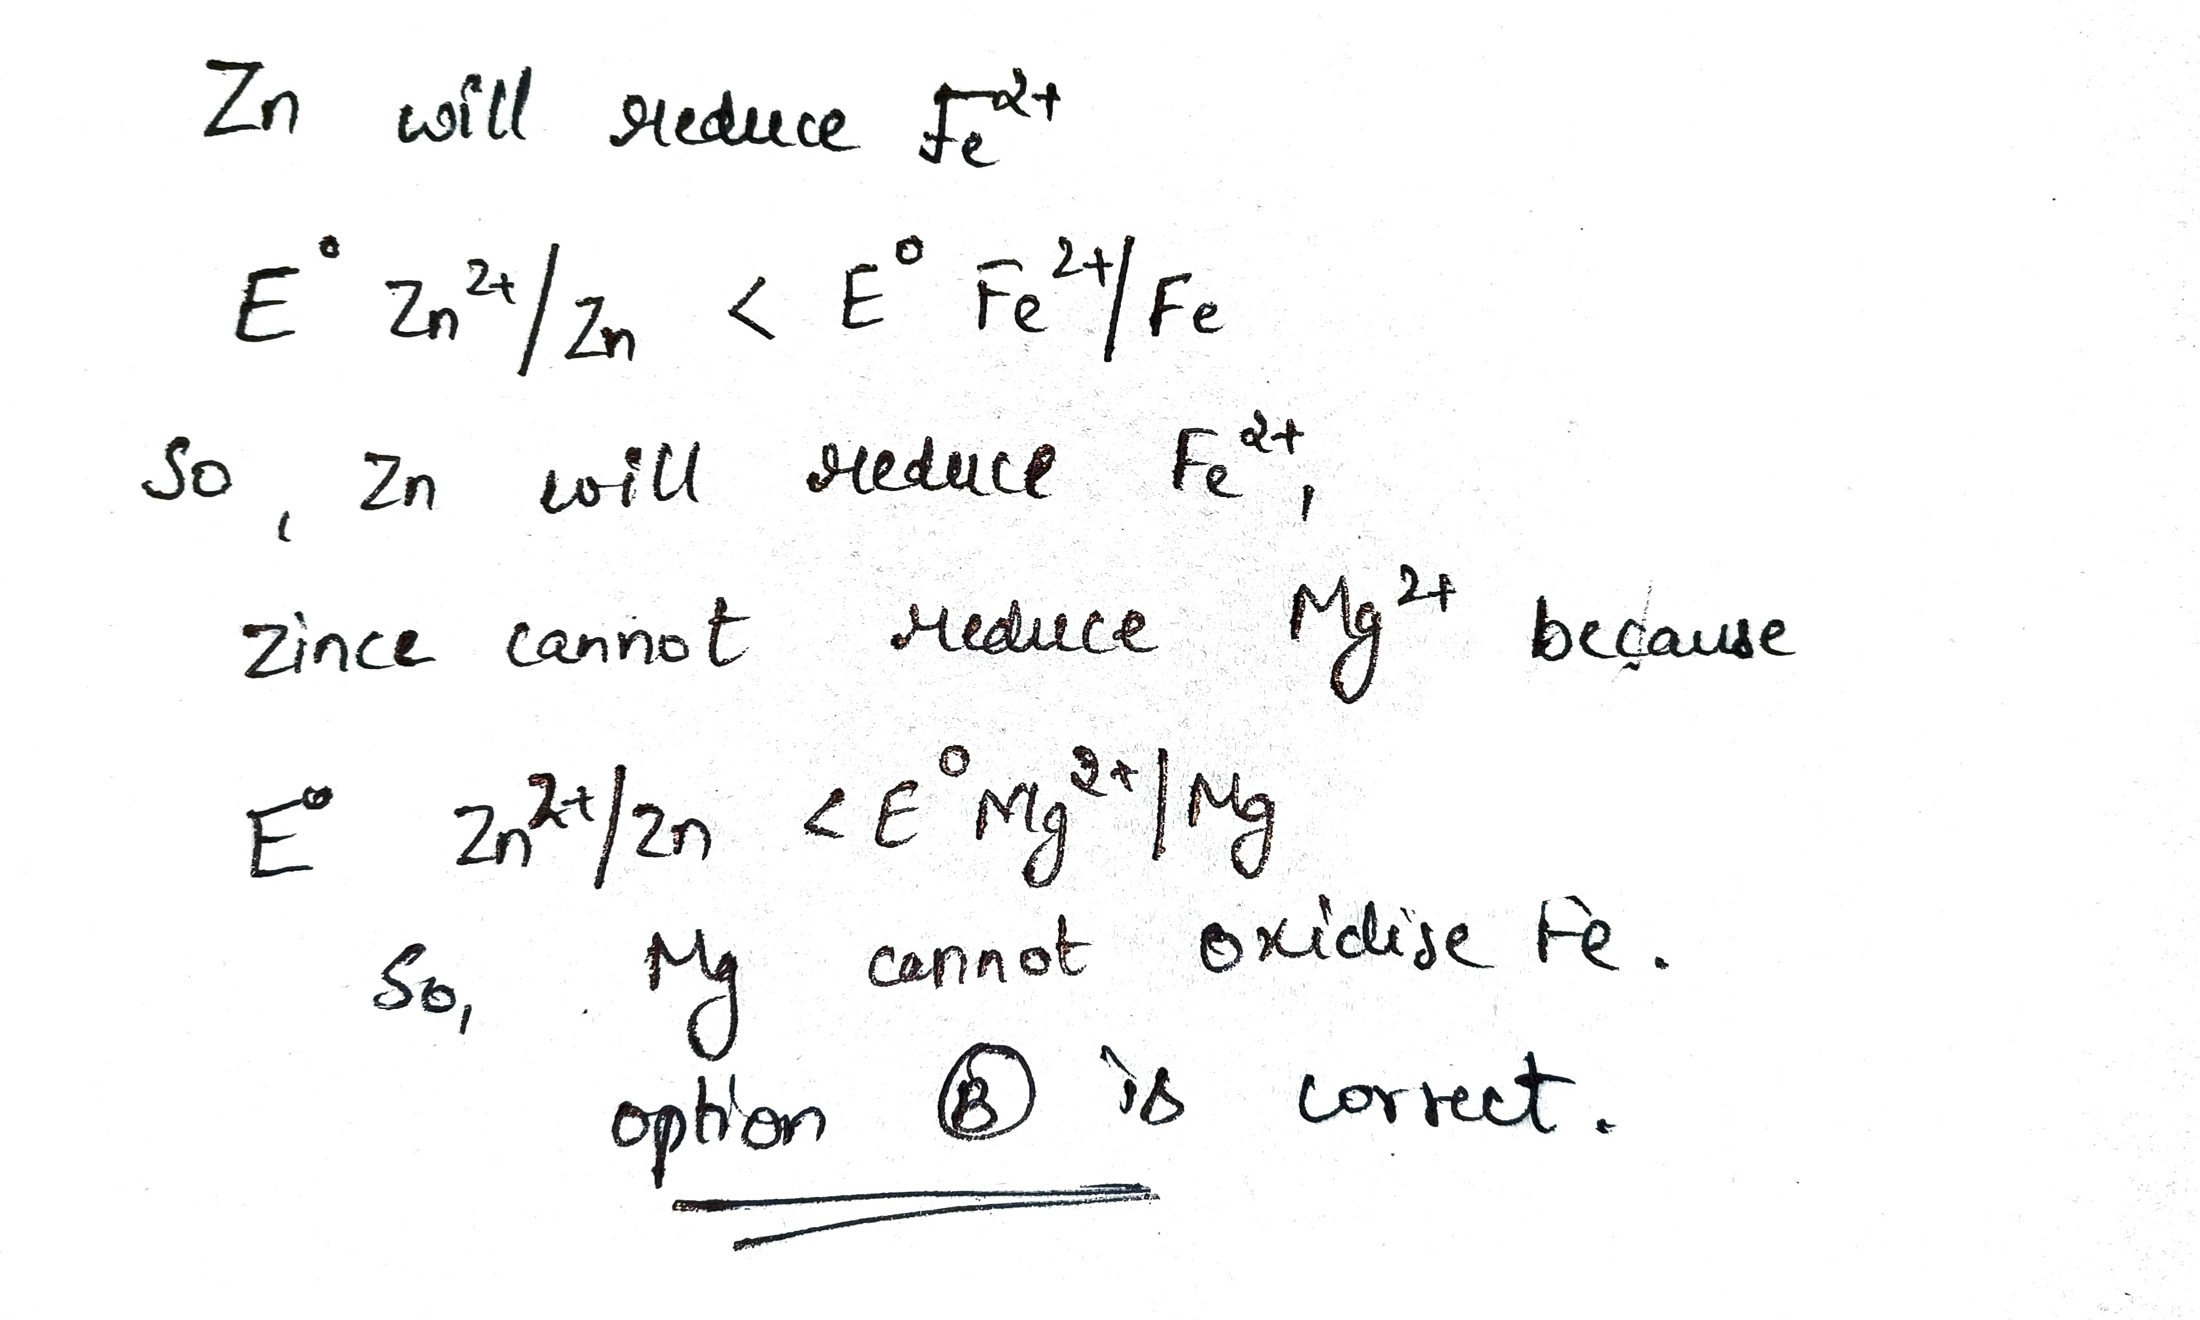 Zn will reduce Fe²⁺
E° Zn²⁺/Zn < E° Fe²⁺/Fe
So, Zn will reduce Fe²⁺,
Zince cannot reduce Mg²⁺ because
E° Zn²⁺/Zn < E° Mg²⁺/Mg
So, Mg cannot oxidise Fe.
option Ⓑ is correct.